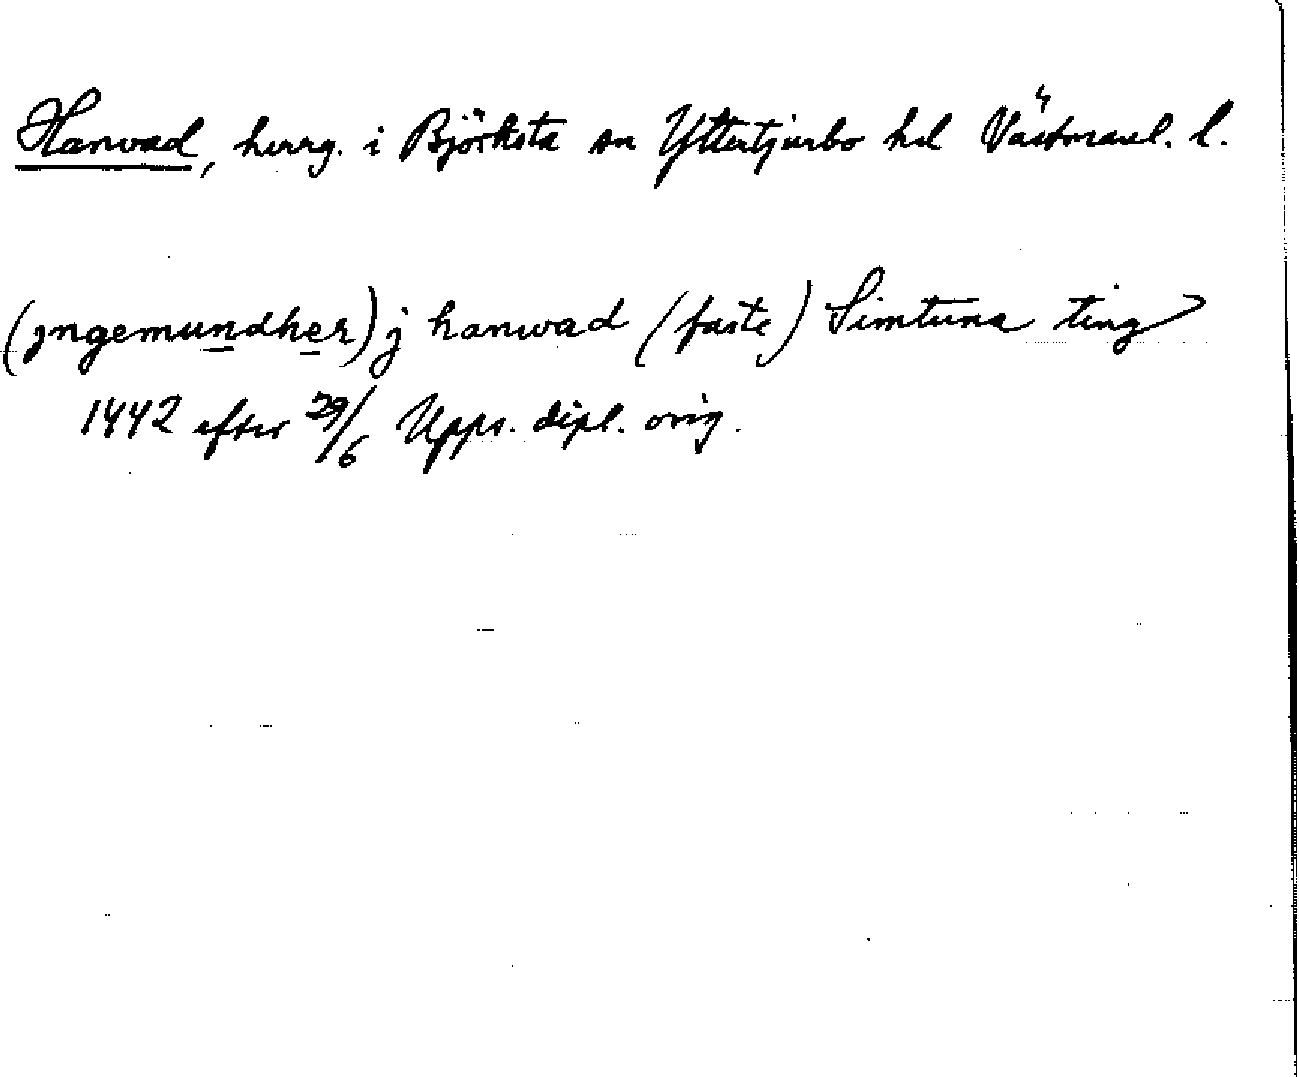 Hanvad, herrg. i Björksta sn Yttertjurbo hd Västmanl. l.
(jngemundher) j hanwad (faste) Simtuna ting
1442 efter 29/6 Upps. dipl. orig.